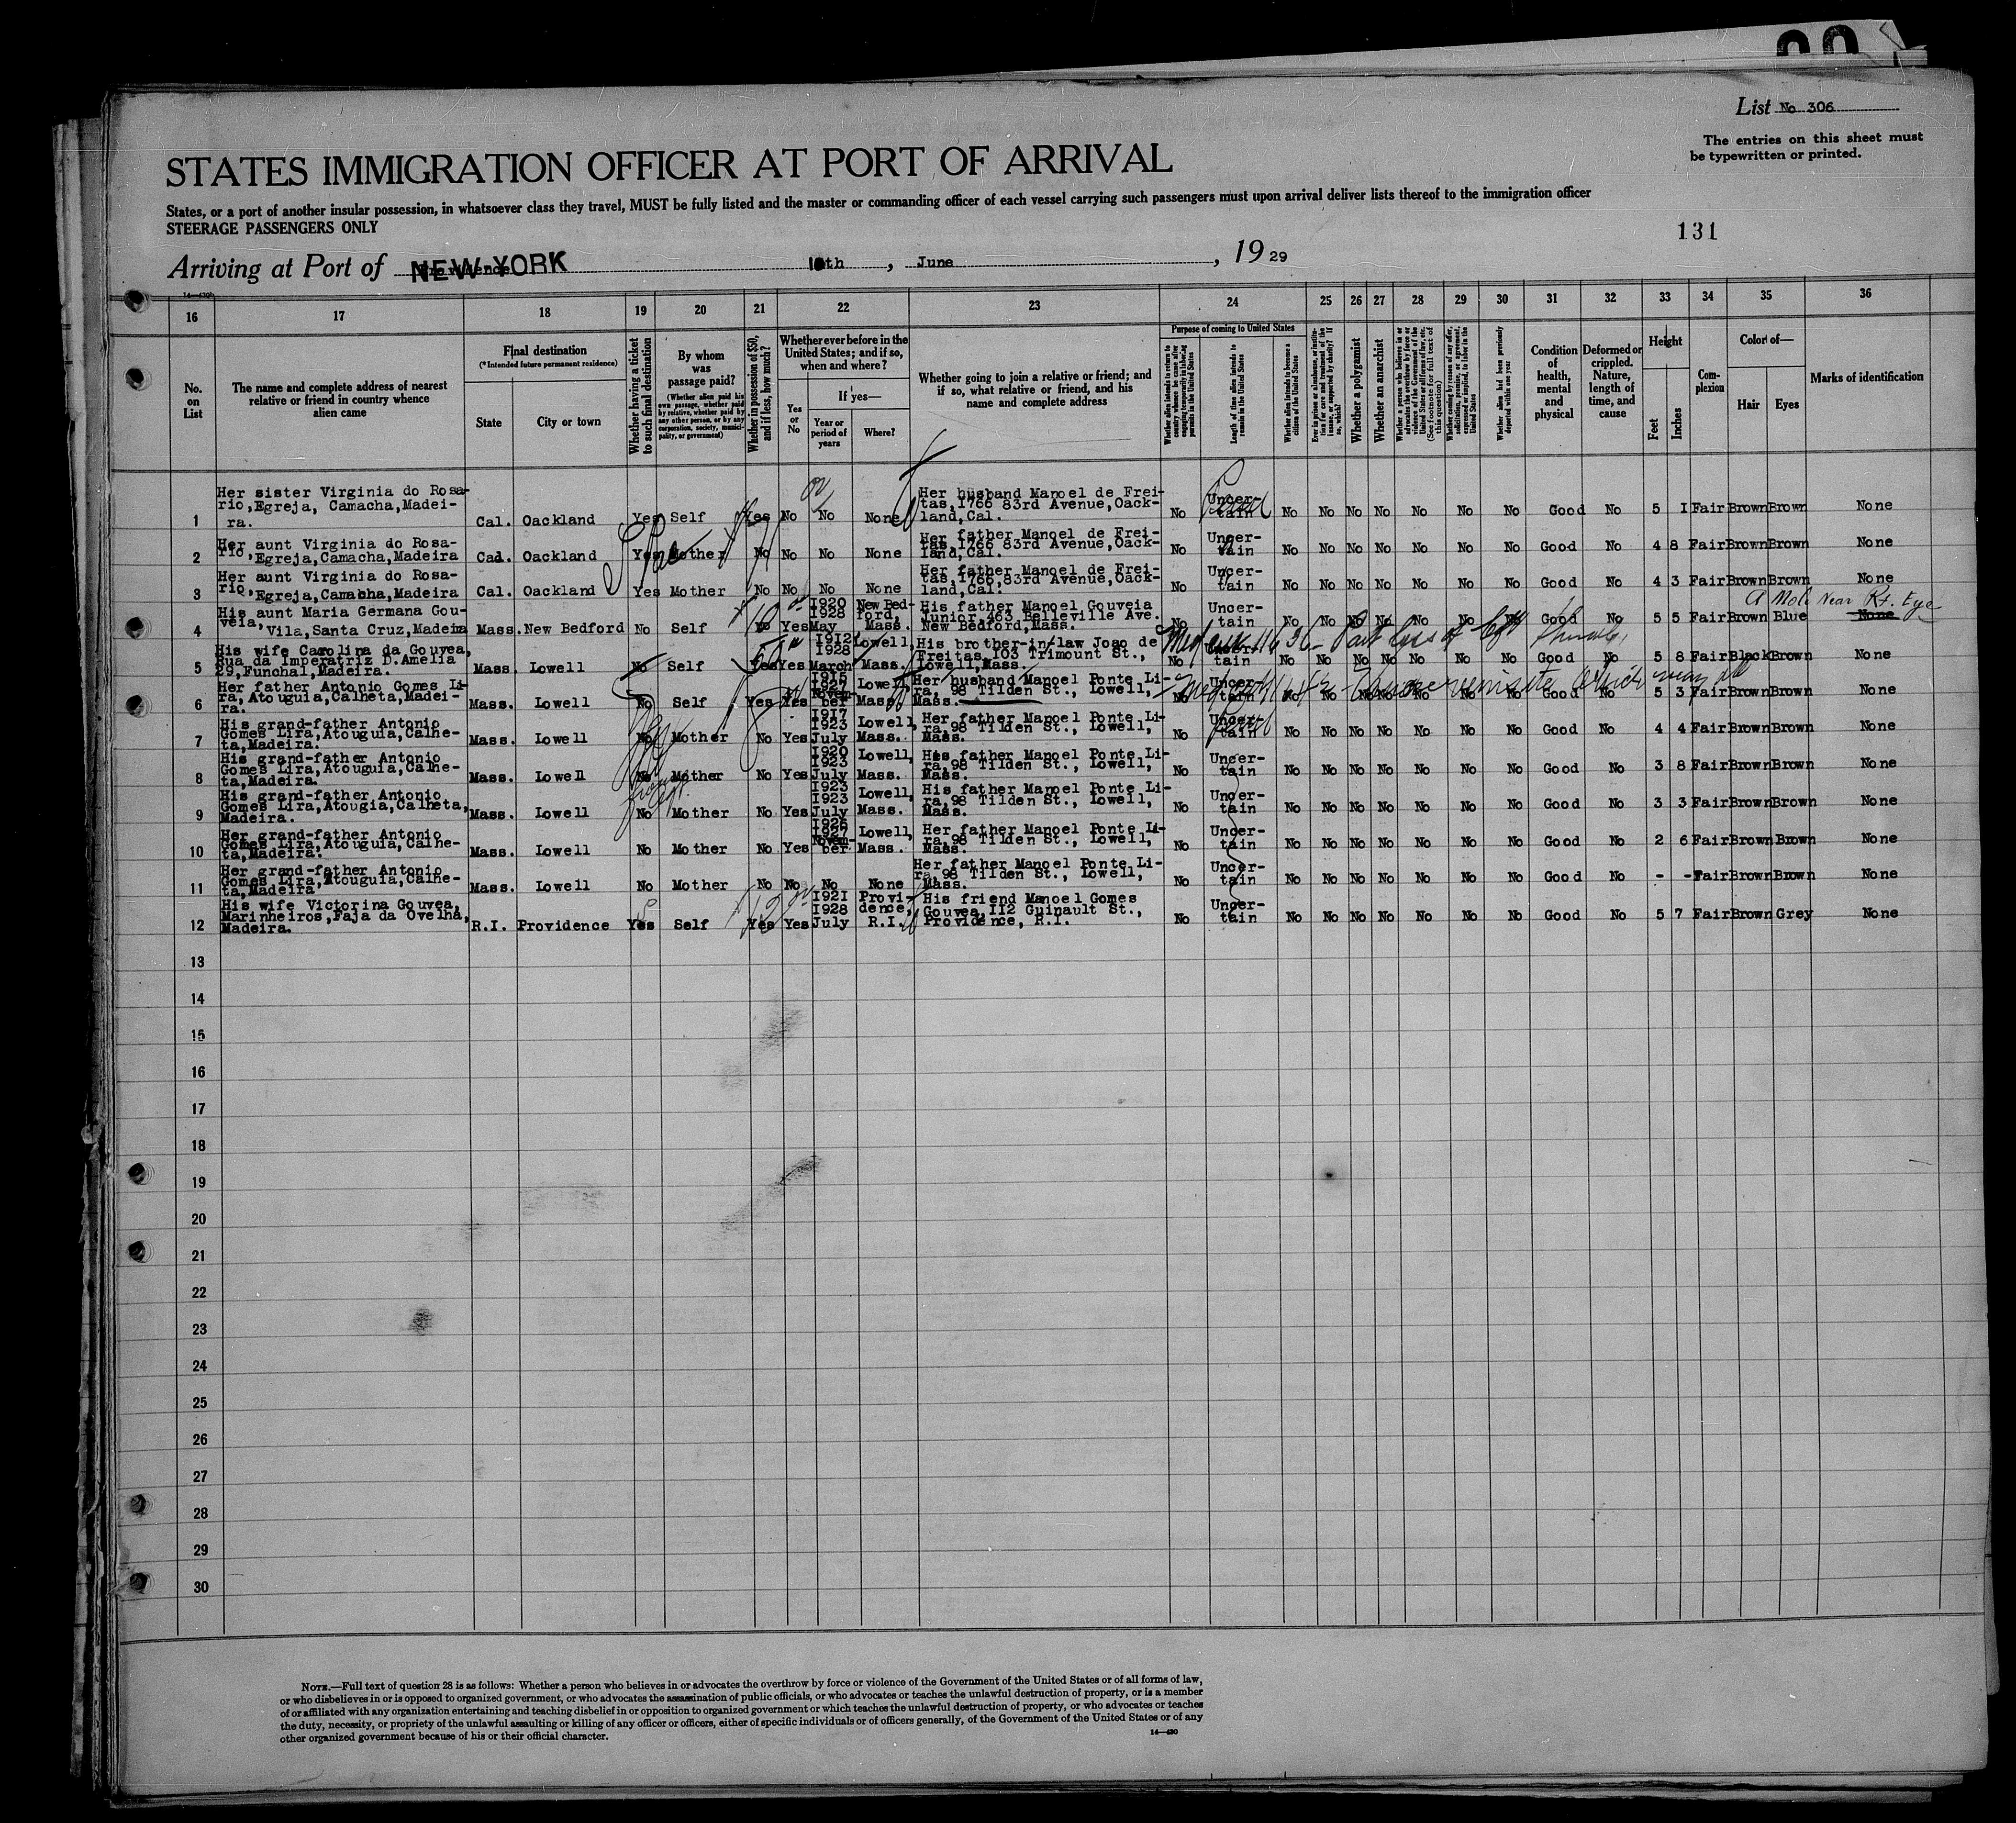 List No 306
The entries on this sheet must
be typewritten or printed.
STATES IMMIGRATION OFFICER AT PORT OF ARRIVAL
States, or a port of another insular possession, in whatsoever class they travel, MUST be fully listed and the master or commanding officer of each vessel carrying such passengers must upon arrival deliver lists thereof to the immigration officer
STEERAGE PASSENGERS ONLY
131
Arriving at Port of NEW YORK th, June, 19 29
16 17 18 19 20 21 22 23 24 25 26 27 28 29 30 31 32 33 34 35 36
No.
on
List
The name and complete address of nearest
relative or friend in country whence
alien came
Final destination
(*Intended future permanent residence)
State
City or town
Whether having a ticket
to such final destination
By whom
was
passage paid?
(Whether alien paid his
own passage, whether paid
by relative, whether paid by
any other person, or by any
corporation, society, munici-
pality, or government)
Whether in possession of $50,
and if less, how much?
Whether ever before in the
United States; and if so,
when and where?
Yes
or
No
If yes—
Year or
period of
years
Where?
Whether going to join a relative or friend; and
if so, what relative or friend, and his
name and complete address
Purpose of coming to United States
Length of time alien intends to
remain in the United States
Whether alien intends to become a
citizen of the United States
Whether a polygamist
Whether an anarchist
Whether alien had been previously
deported within one year
Condition
of
health,
mental
and
physical
Deformed or
crippled.
Nature,
length of
time, and
cause
Height
Feet
Inches
Com-
plexion
Color of—
Hair
Eyes
Marks of identification
1 Her sister Virginia do Rosa-
rio, Egreja, Camacha, Madei-
ra. Cal. Oackland Yes Self Yes No No None
Her husband Manoel de Frei-
tas, 1766 83rd Avenue, Oack-
land, Cal. No Uncer-
tain No No No No No No No Good No 5 1 Fair Brown Brown None
2 Her aunt Virginia do Rosa-
rio, Egreja, Camacha, Madeira Cal. Oackland Yes Mother No No No None
Her father Manoel de Frei-
tas, 1766 83rd Avenue, Oack-
land, Cal. No Uncer-
tain No No No No No No No Good No 4 8 Fair Brown Brown None
3 Her aunt Virginia do Rosa-
rio, Egreja, Camacha, Madeira Cal. Oackland Yes Mother No No No None
Her father Manoel de Frei-
tas, 1766, 83rd Avenue, Oack-
land, Cal. No Uncer-
tain No No No No No No No Good No 4 3 Fair Brown Brown None
4 His aunt Maria Germana Gou-
veia, Vila, Santa Cruz, Madeira Mass. New Bedford No Self Yes 1920
1928
May New Bed-
ford,
Mass.
His father Manoel Gouveia
Junior, 463 Belleville Ave.
New Bedford, Mass. No Uncer-
tain No No No No No No No Good No 5 5 Fair Brown Blue None
A Mole Near Rt. Eye
5 His wife Carolina da Gouvea,
Rua da Imperatriz D. Amelia
29, Funchal, Madeira. Mass. Lowell No Self Yes Yes 1912
1928
March Lowell,
Mass.
His brother-in-law Joao de
Freitas, 103 Trimount St.,
Lowell, Mass. No Uncer-
tain No No No No No No No Good No 5 8 Fair Black Brown None
6 Her father Antonio Gomes Li-
ra, Atouguia, Calheta, Madei-
ra. Mass. Lowell No Self Yes Yes 1915
1927
Novem-
ber Lowell
Mass.
Her husband Manoel Ponte Li-
ra, 98 Tilden St., Lowell,
Mass. No Uncer-
tain No No No No No No No Good No 5 3 Fair Brown Brown None
7 His grand-father Antonio
Gomes Lira, Atouguia, Calhe-
ta, Madeira. Mass. Lowell No Mother No Yes 1917
1923
July Lowell,
Mass.
Her father Manoel Ponte Li-
ra, 98 Tilden St., Lowell,
Mass. No Uncer-
tain No No No No No No No Good No 4 4 Fair Brown Brown None
8 His grand-father Antonio
Gomes Lira, Atouguia, Calhe-
ta, Madeira. Mass. Lowell No Mother No Yes 1920
1923
July Lowell,
Mass.
His father Manoel Ponte Li-
ra, 98 Tilden St., Lowell,
Mass. No Uncer-
tain No No No No No No No Good No 3 8 Fair Brown Brown None
9 His grand-father Antonio
Gomes Lira, Atougia, Calheta,
Madeira. Mass. Lowell No Mother No Yes 1923
1923
July Lowell,
Mass.
His father Manoel Ponte Li-
ra, 98 Tilden St., Lowell,
Mass. No Uncer-
tain No No No No No No No Good No 3 3 Fair Brown Brown None
10 Her grand-father Antonio
Gomes Lira, Atouguia, Calhe-
ta, Madeira. Mass. Lowell No Mother No Yes 1926
1927
Novem-
ber Lowell,
Mass.
Her father Manoel Ponte Li-
ra, 98 Tilden St., Lowell,
Mass. No Uncer-
tain No No No No No No No Good No 2 6 Fair Brown Brown None
11 Her grand-father Antonio
Gomes Lira, Atouguia, Calhe-
ta, Madeira Mass. Lowell No Mother No No No None
Her father Manoel Ponte Li-
ra, 98 Tilden St., Lowell,
Mass. No Uncer-
tain No No No No No No No Good No - - Fair Brown Brown None
12 His wife Victorina Gouvea,
Marinheiros, Faja da Ovelha,
Madeira. R.I. Providence Yes Self Yes Yes 1921
1928
July Provi-
dence,
R.I.
His friend Manoel Gomes
Gouvea, 112 Guinault St.,
Providence, R.I. No Uncer-
tain No No No No No No No Good No 5 7 Fair Brown Grey None
13
14
15
16
17
18
19
20
21
22
23
24
25
26
27
28
29
30
NOTE.—Full text of question 28 is as follows: Whether a person who believes in or advocates the overthrow by force or violence of the Government of the United States or of all forms of law,
or who disbelieves in or is opposed to organized government, or who advocates the assassination of public officials, or who advocates or teaches the unlawful destruction of property, or is a member
of or affiliated with any organization entertaining and teaching disbelief in or opposition to organized government or which teaches the unlawful destruction of property, or who advocates or teaches
the duty, necessity, or propriety of the unlawful assaulting or killing of any officer or officers, either of specific individuals or of officers generally, of the Government of the United States or of any
other organized government because of his or their official character.
14—430